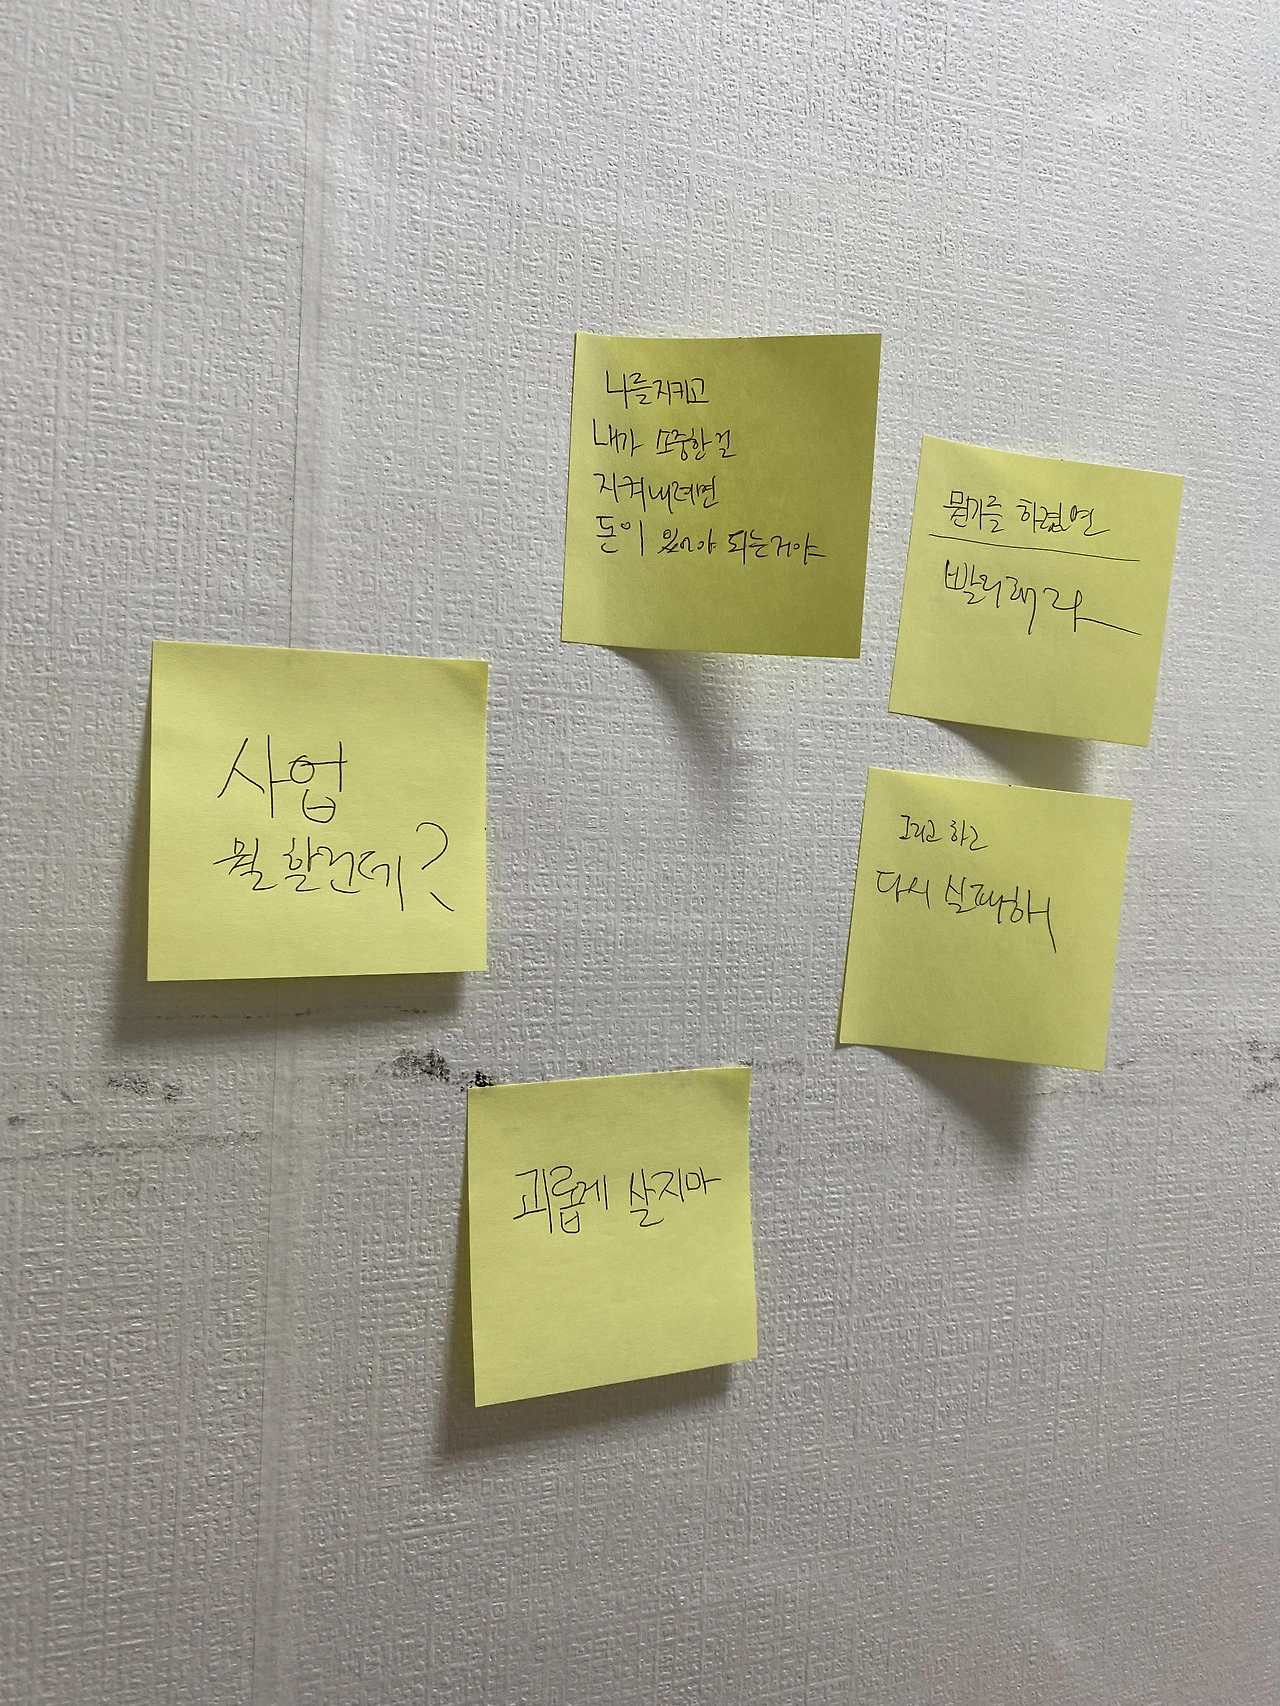 나를 지키고
내가 소중한 걸
지켜내려면
돈이 있어야 되는거야
뭔가를 하렵면
빨리해라
사업
뭘 할건데?
그리고 하고
다시 실패해
괴롭게 살지마